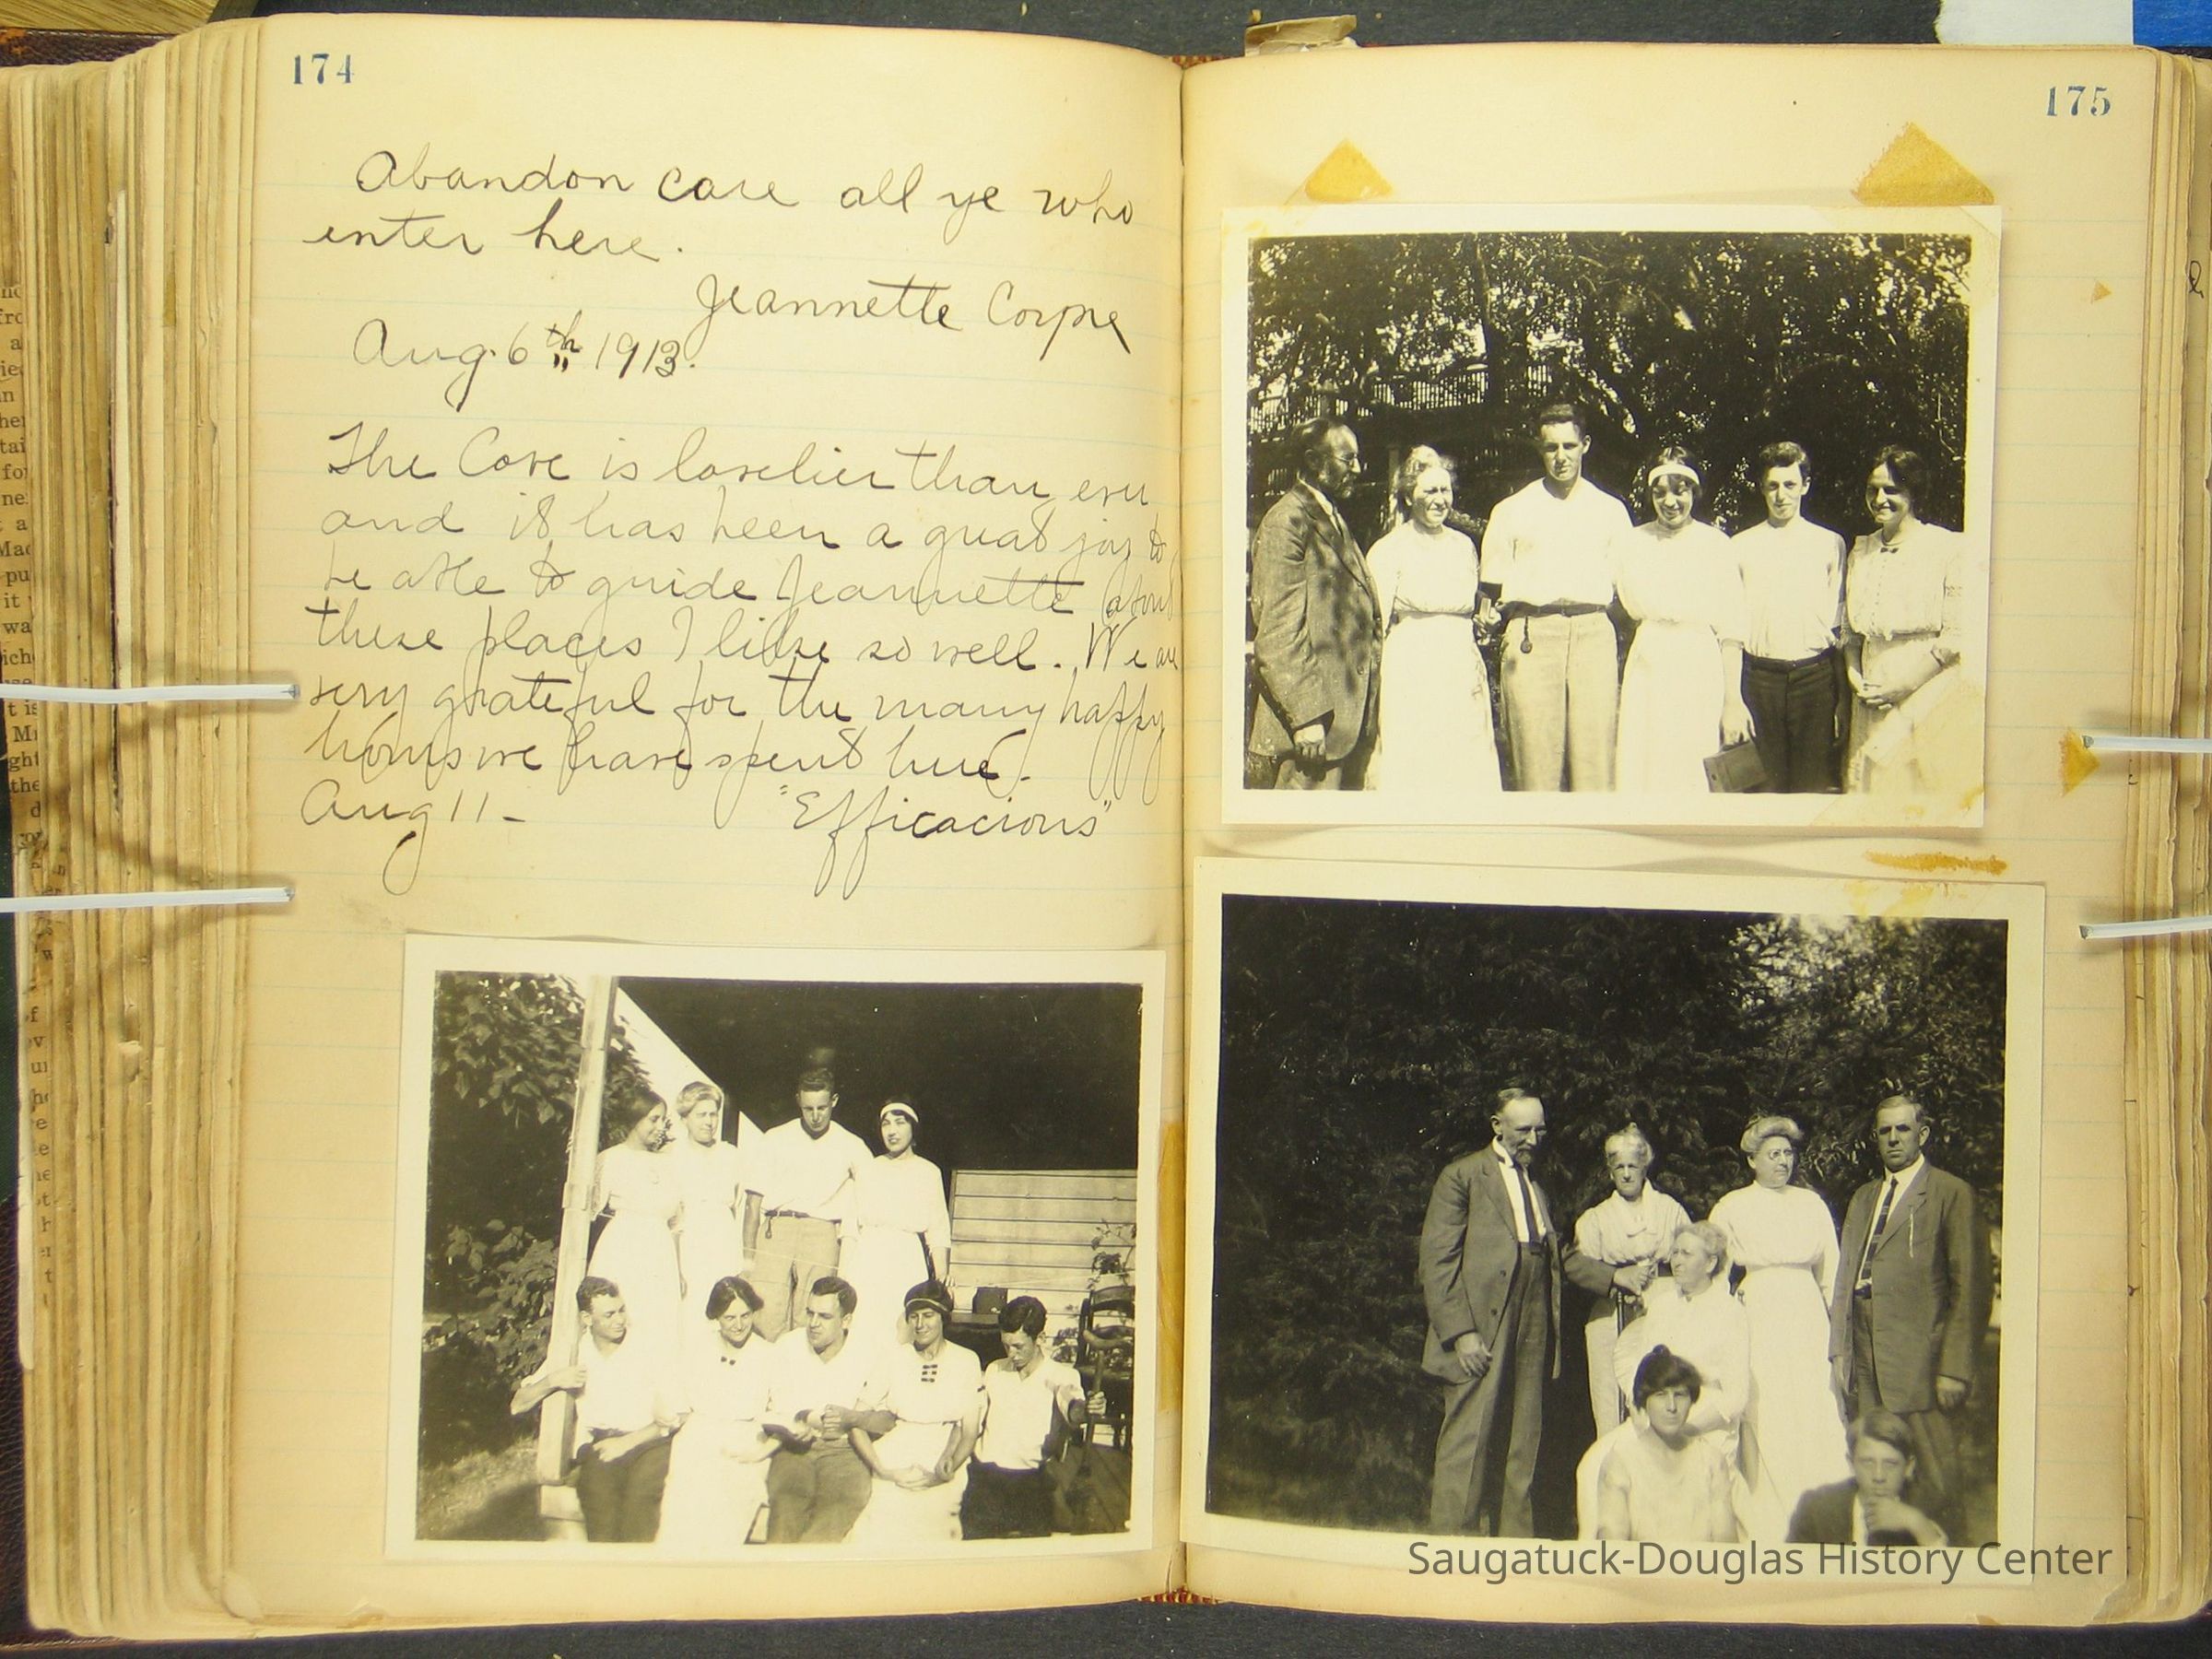 174
Abandon care all ye who
enter here.
Jeannette Corpe
Aug. 6th 1913.
The Cove is lovelier than ever
and it has been a great joy to
be able to guide Jeannette about
these places I like so well. We are
very grateful for the many happy
hours we have spent here.
Aug 11 - "Efficacious"
175
Saugatuck-Douglas History Center